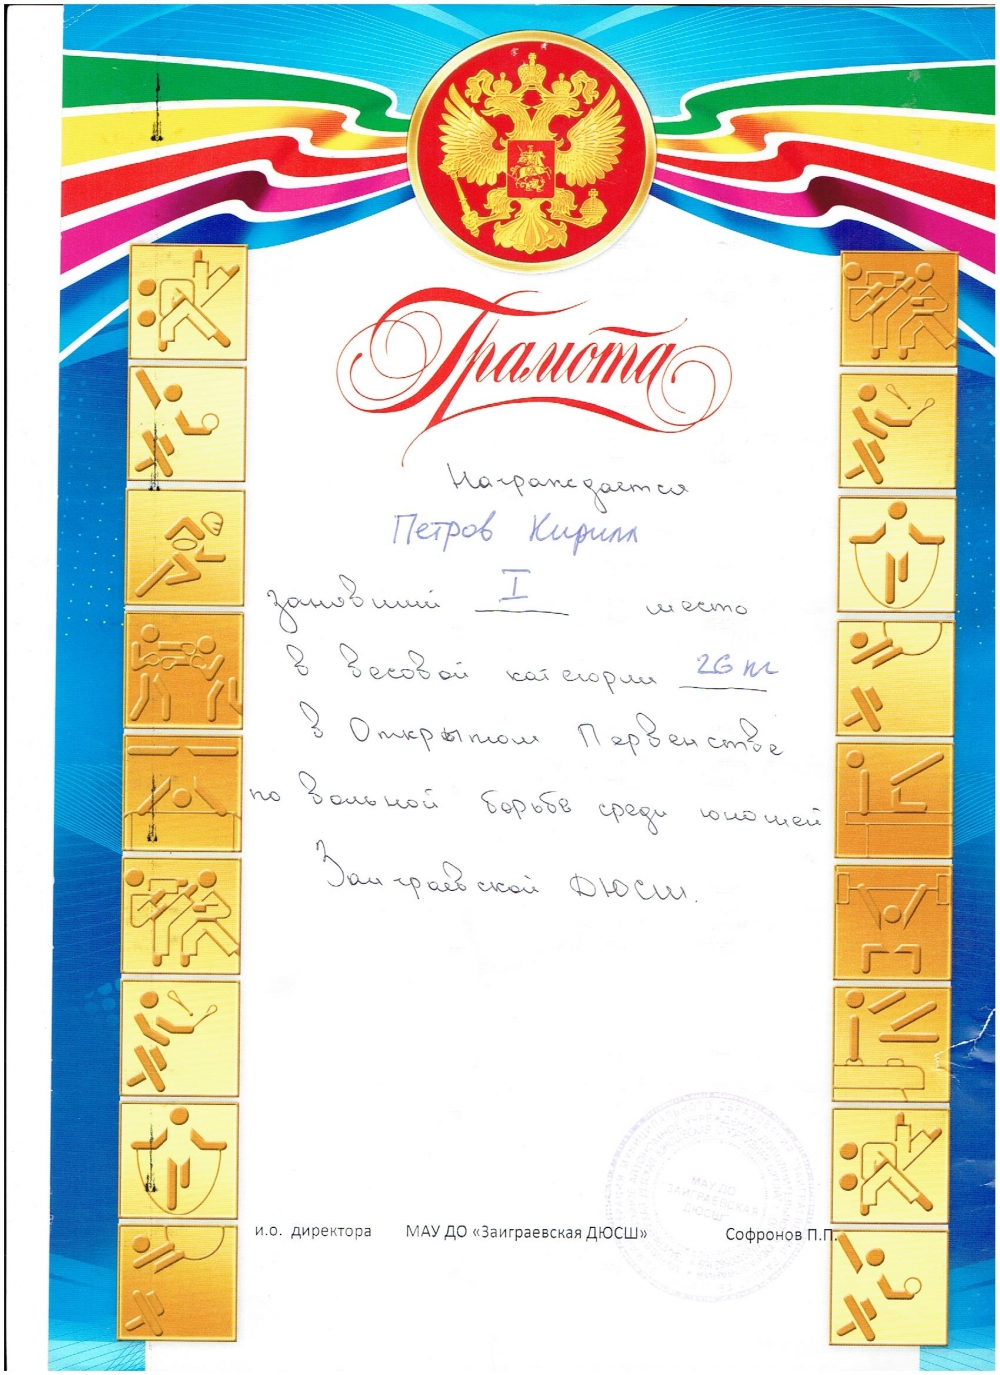 Грамота
Награждается
Петров Кирилл
занявший I место
в весовой категории 26 кг
в Открытом Первенстве
по вольной борьбе среди юношей
Заиграевской ДЮСШ.
МАУ ДО
ЗАИГРАЕВСКАЯ
ДЮСШ
и.о. директора МАУ ДО «Заиграевская ДЮСШ» Софронов П.П.